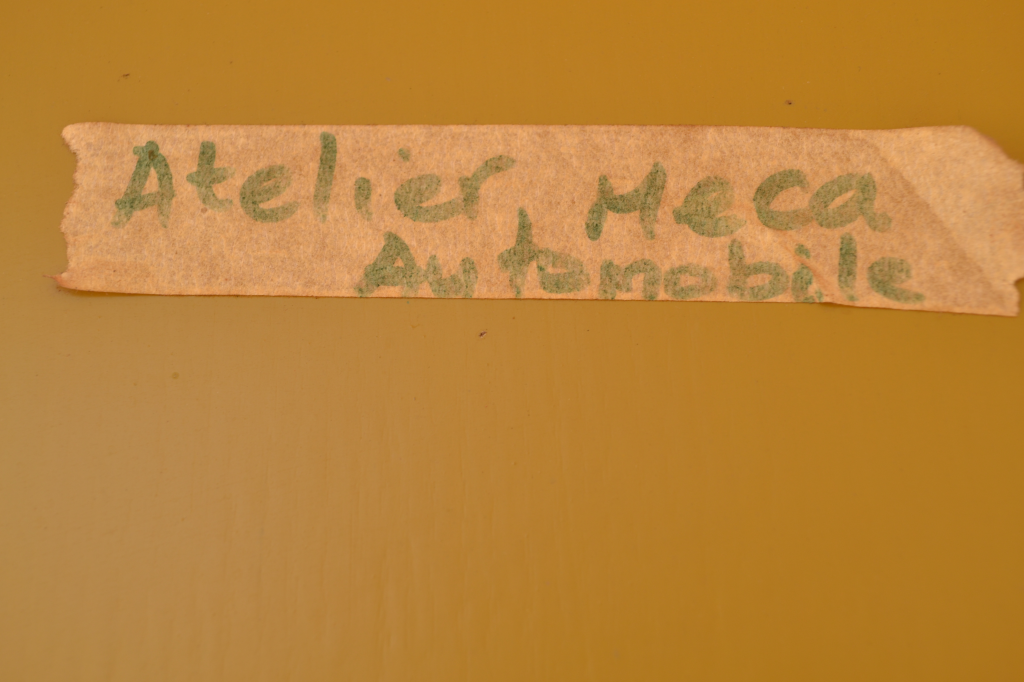 Atelier Meca
Automobile